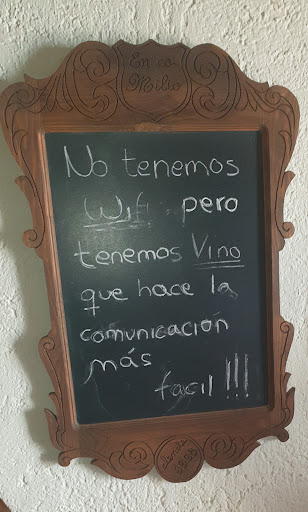 No tenemos
Wifi pero
tenemos Vino
que hace la
comunicación
más
facil !!!